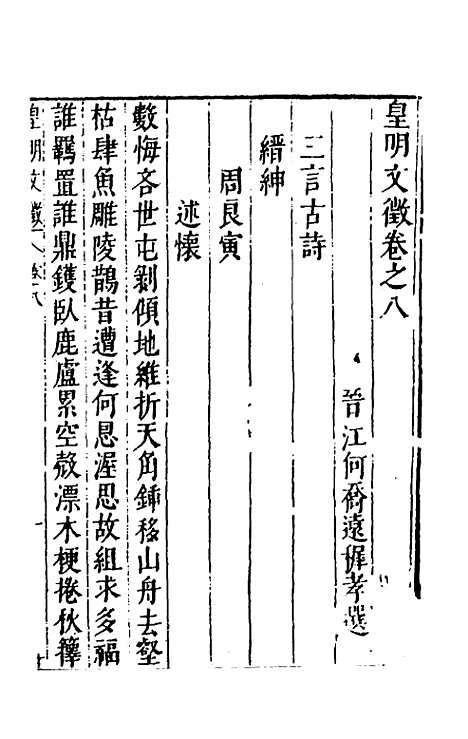 皇明文徵卷之八
晉江何喬遠穉孝選
三言古詩
縉紳
周良寅
述懷
數悔吝世屯剝傾地維折天角鍾移山舟去壑
枯肆魚雕陵鵲昔遭逢何恩渥思故組求多福
誰羈罝誰鼎鑊臥鹿廬累空殼漂木梗捲秋籜
皇明文徵 卷八 一